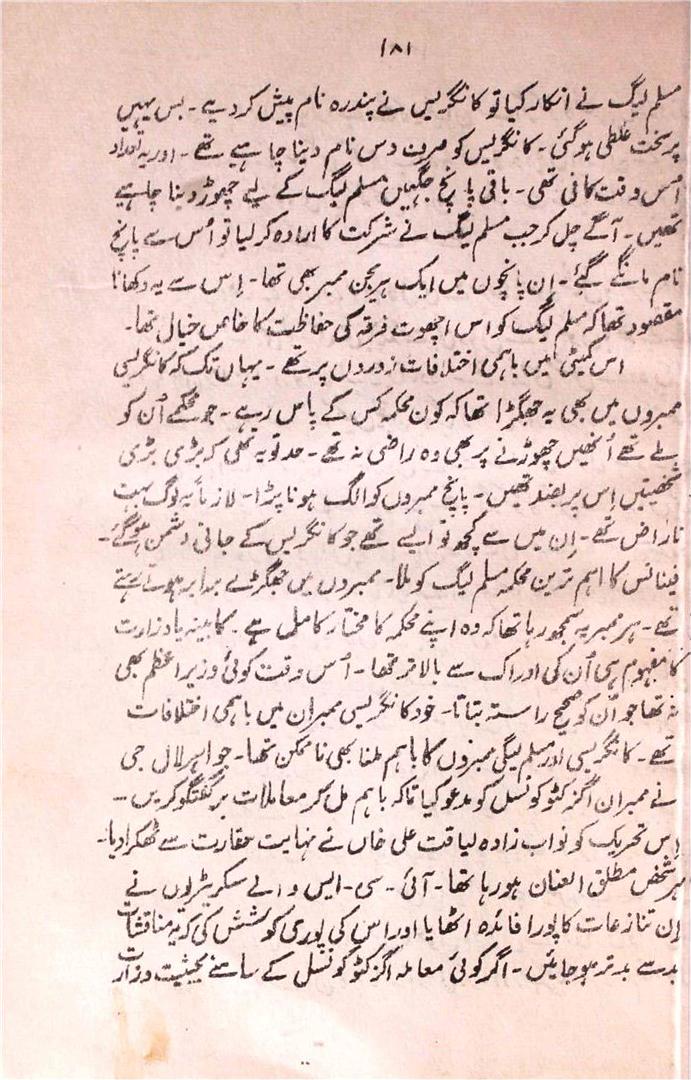 ۱۸۱
مسلم لیگ نے انکار کیا تو کانگریس نے پندرہ نام پیش کر دیے۔ بس یہیں
پر سخت غلطی ہو گئی۔ کانگریس کو صرف دس نام دینا چاہیے تھے۔ اور یہ تعداد
اُس وقت کافی تھی۔ باقی پانچ جگہیں مسلم لیگ کے لیے چھوڑ دینا چاہیے
تھیں۔ آگے چل کر جب مسلم لیگ نے شرکت کا ارادہ کر لیا تو اُس سے پانچ
نام مانگے گئے۔ اِن پانچوں میں ایک ہریجن ممبر بھی تھا۔ اِس سے یہ دکھانا
مقصود تھا کہ مسلم لیگ کو اس اچھوت فرقہ کی حفاظت کا خاص خیال تھا۔
اس کمیٹی میں باہمی اختلافات زوروں پر تھے۔ یہاں تک کہ کانگریسی
ممبروں میں بھی یہ جھگڑا تھا کہ کون محکمہ کس کے پاس رہے۔ جو محکمے اُن کو
ملے تھے اُنھیں چھوڑنے پر بھی وہ راضی نہ تھے۔ حد تو یہ تھی کہ بڑی بڑی
شخصیتیں اِس پر بضد تھیں۔ پانچ ممبروں کو الگ ہونا پڑا۔ لازماً یہ لوگ بہت
ناراض تھے۔ اِن میں سے کچھ تو ایسے تھے جو کانگریس کے جانی دشمن ہو گئے۔
فینانس کا اہم ترین محکمہ مسلم لیگ کو ملا۔ ممبروں میں جھگڑے برابر ہوتے رہتے
تھے۔ ہر ممبر یہ سمجھ رہا تھا کہ وہ اپنے محکمہ کا مختار کامل ہے۔ کابینہ یا وزارت
کا مفہوم ہی اُن کی ادراک سے بالاتر تھا۔ اُس وقت کوئی وزیر اعظم بھی
نہ تھا جو اُن کو صحیح راستہ بتاتا۔ خود کانگریسی ممبران میں باہمی اختلافات
تھے۔ کانگریسی اور مسلم لیگی ممبروں کا باہم ملنا بھی ناممکن تھا۔ جواہر لال جی
نے ممبران اگزکٹو کونسل کو مدعو کیا تاکہ باہم مل کر معاملات پر گفتگو کریں۔
اِس تحریک کو نواب زادہ لیاقت علی خاں نے نہایت حقارت سے ٹھکرا دیا۔
ہر شخص مطلق العنان ہو رہا تھا۔ آئی۔ سی۔ ایس والے سکریٹریوں نے
اِن تنازعات کا پورا فائدہ اٹھایا اور اس کی پوری کوشش کی کہ یہ مناقشات
بد سے بدتر ہو جائیں۔ اگر کوئی معاملہ اگزکٹو کونسل کے سامنے بحیثیت وزارت